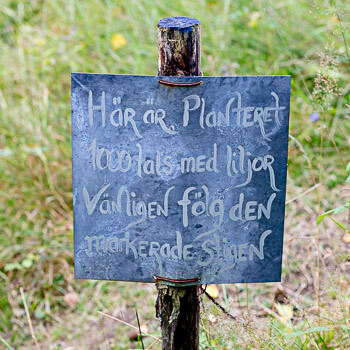 Här är Planteret
1000tals med liljor
Vänligen följ den
markerade Stigen